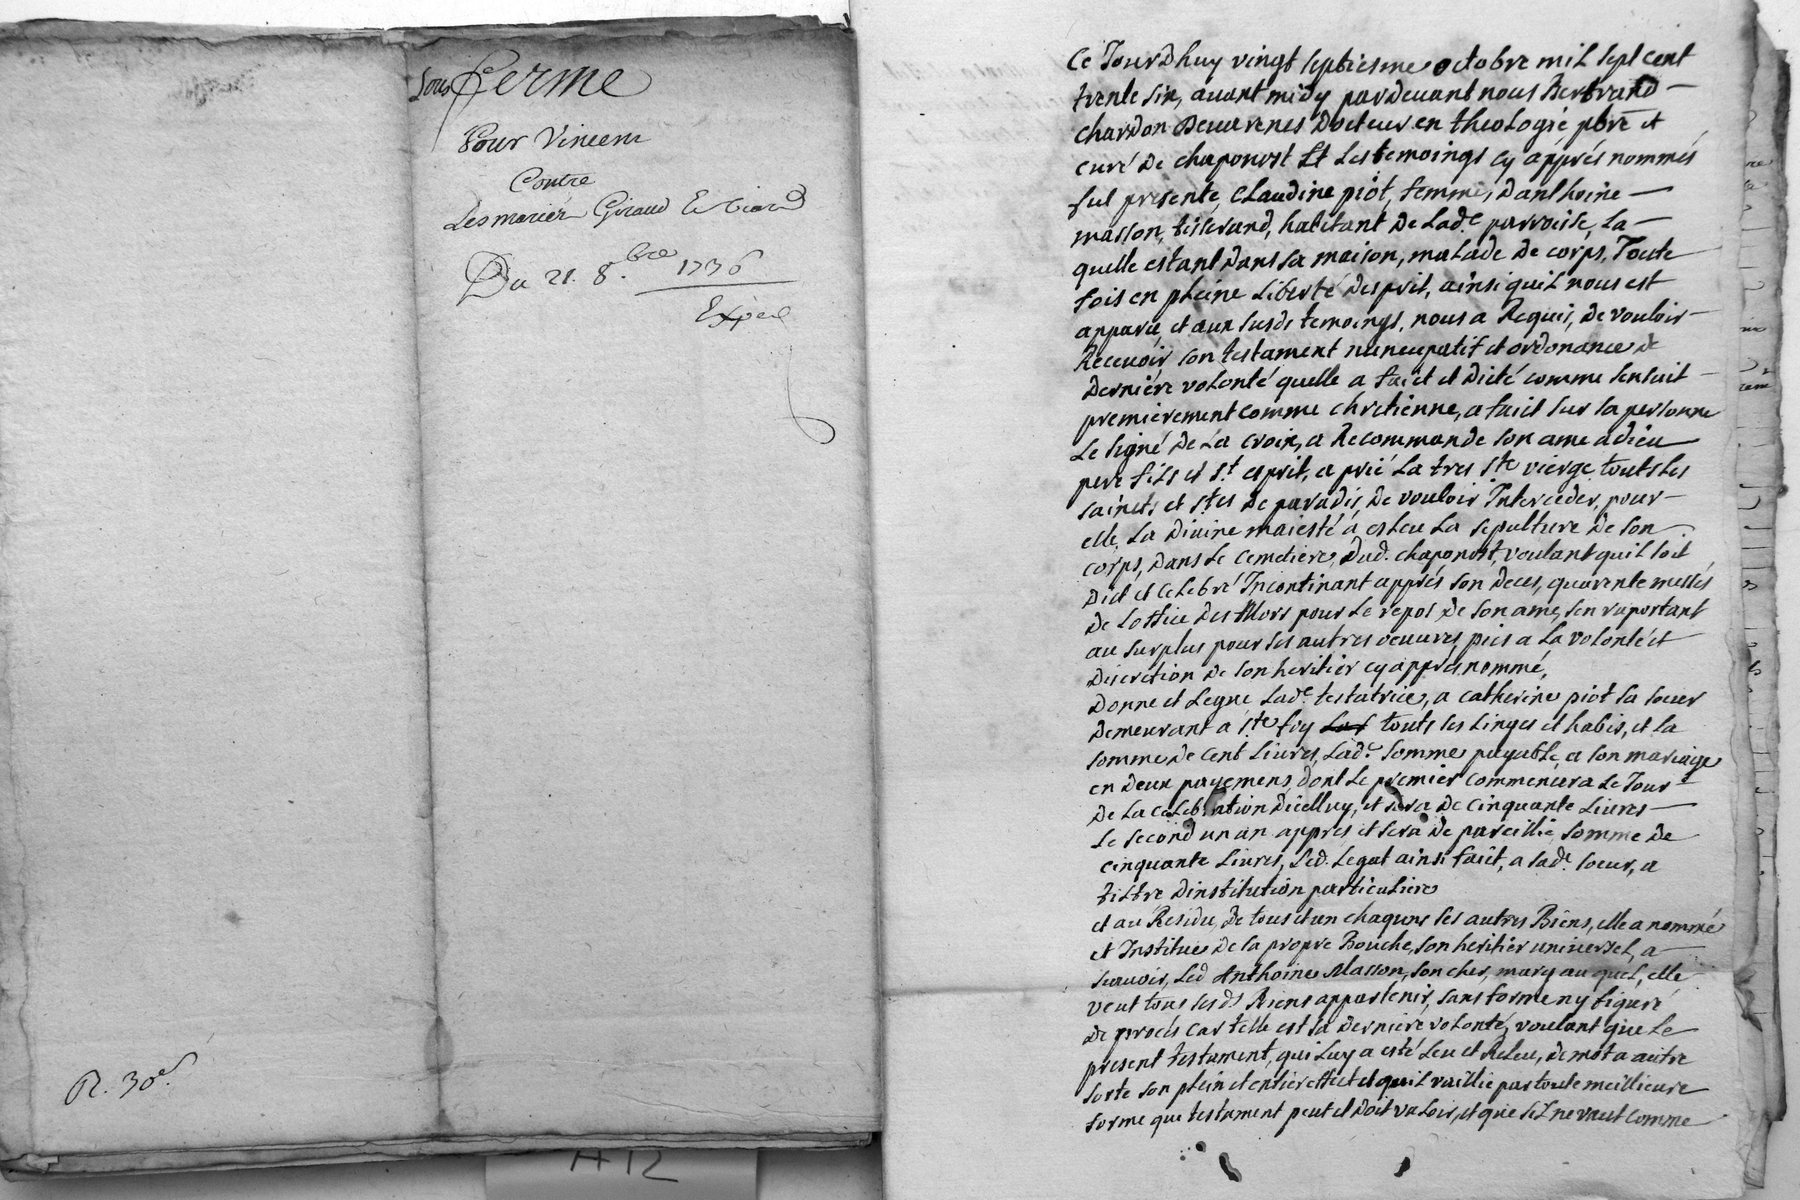 Sous ferme
Pour Vincent
Contre
Les mariés Giraud Et
Du 21. 8.bre 1736
Exped
R. 30s.
A 12
Ce Jourdhuy vingt septiesme octobre mil sept cent
trente six, avant midy pardevant nous Bertrand
chardon Devarenes Docteur en theologie pbre et
curé de chaponost Et Les temoings cy apprés nommés
fut presente, Claudine piot, femme, danthoine
masson, tisserand, habitant De Lad.e parroise, La
quelle estant dans sa maison, malade de corps, Toute
fois en pleine Liberté desprit, ainsi quil nous est
apparu, et aux susds temoings, nous a Requis, de vouloir
Recevoir son testament nuncupatif et ordonance de
derniére volonté quelle a faict et dicté comme sensuit
premierement comme chretienne, a faict sur sa personne
Le signé de La croix, a Recommande son ame a dieu
pere fils et s.t esprit, a prié La tres ste vierge touts Les
saincts et s.tes de paradis, de vouloir Interceder, pour
elle, La Divine maiesté a esleu La sepulture de son
corps, dans Le cemetiere, Dud. chaponost, voulant quil soit
dict et celebré Incontinant apprés son deces, quarente messes
de Loffice des Mors pour Le repos de son ame, sen raportant
au surplus pour ses autres oeuvres, pies a La volonté et
discretion de son heritier cy appres nommé,
Donne et Legue Lad.e testatrice, a catherine piot sa soeur
demeurant a s.te foy touts ses Linges et habis, et La
somme de cent Livres, Lad.e somme payable, a son mariage
en deux payemens, dont Le premier commencera Le Jour
de La celebration dicelluy, et sera de cinquante Livres
Le second un an appres, et sera de pareillie somme de
cinquante Livres, Led. Legat ainsi faict, a sad.e soeur, a
tiltre dinstitution particuliere
et au Residu, de tous et un chaquns ses autres Biens, elle a nommé
et Institue de sa propre Bouche, son heritier universel, a
scavoir, Led Anthoine Masson, son cher, mary au quel, elle
veut tous sesds Biens appartenir, sans forme ny figure
de procés car telle est sa derniere volonté, voulant que Le
present testament, qui Luy a esté Leu et Releu, de mot a autre
sorte son plein et entier effect et quil vaillie par toute meillieure
forme que testament peut et doit valoir, et que sil ne vaut comme